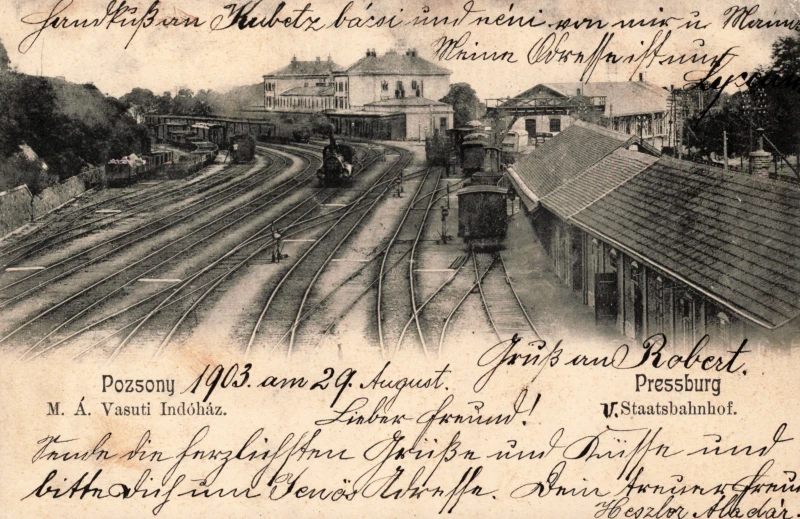 Handkuß an Kubetz bácsi und néni, von mir u Mama
Meine Adresse ist nur
Lyceum
Gruß an Robert.
Pozsony 1903. am 29. August. Pressburg
M. Á. Vasuti Indóház. U. Staatsbahnhof.
Lieber Freund!
Sende die herzlichsten Grüße und Küsse und
bitte Dich um Jenős Adresse. Dein treuer Freund
Heszler Aladár.